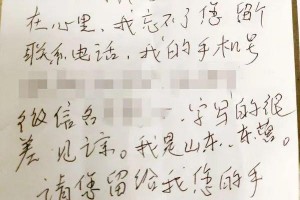 在心里,我忘不了您 留个
联系电话,我的手机号
微信名 字写的很
差 见谅。我是山东
请您留给我您的手